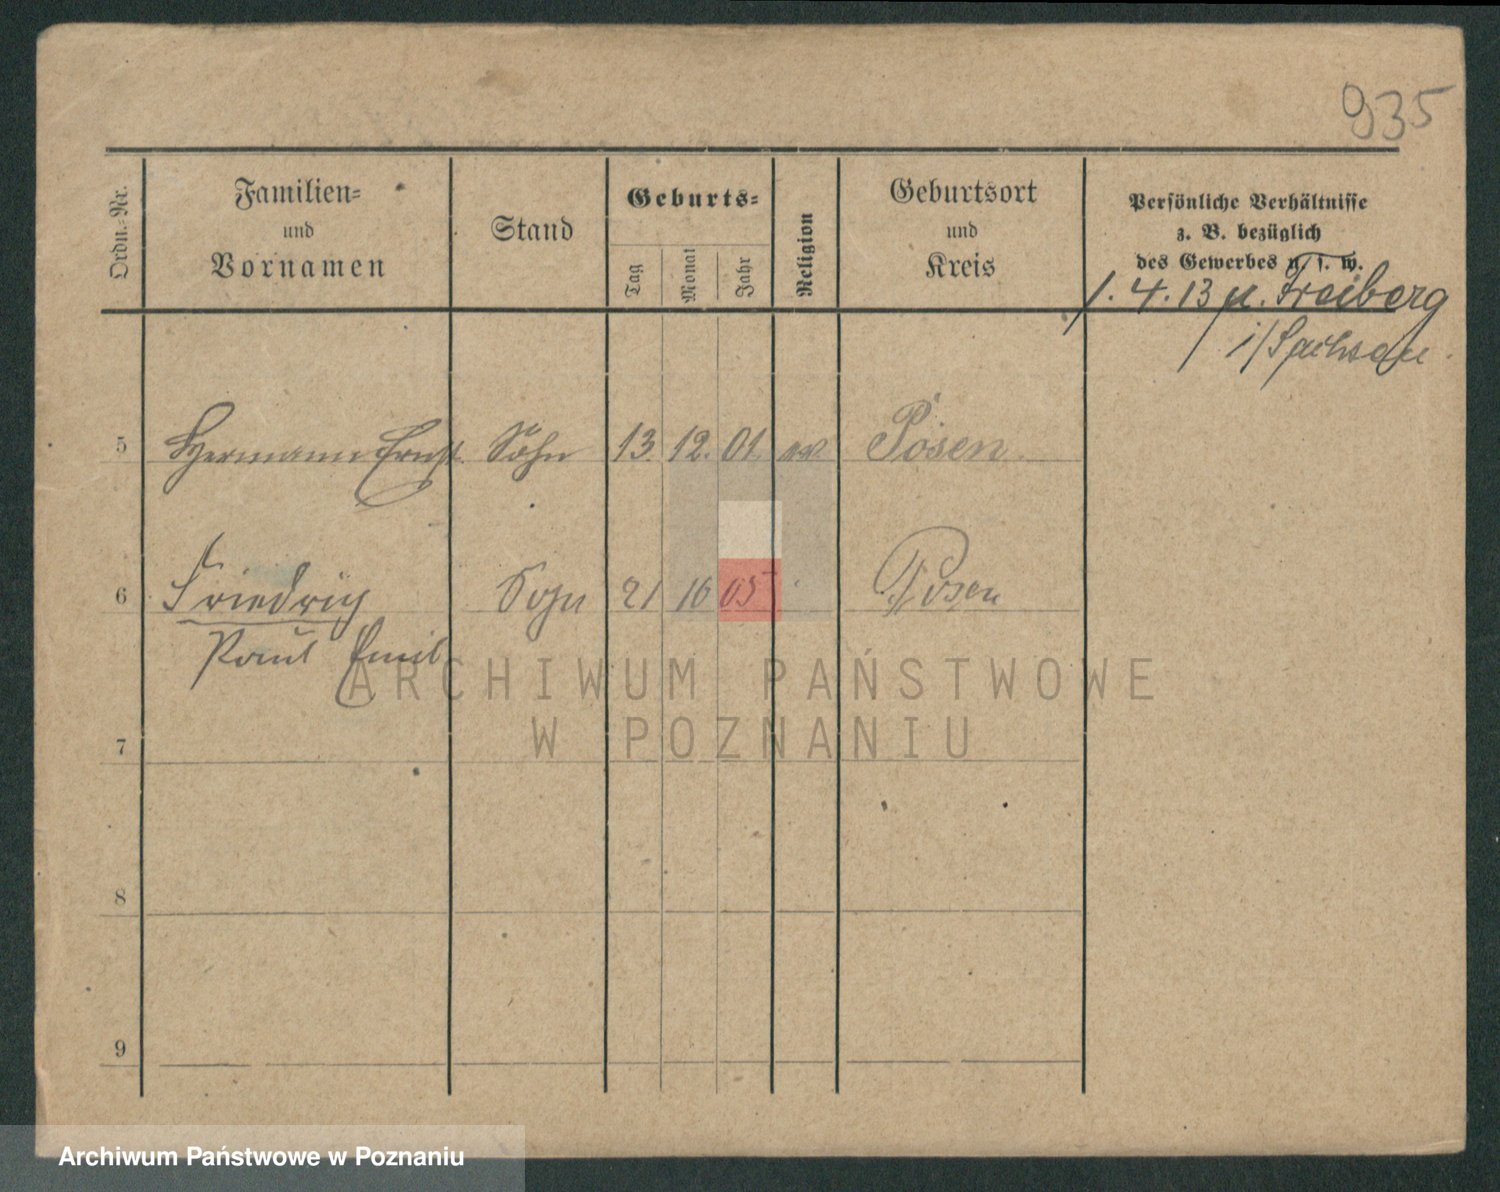 935
Ordn.-Nr.
Familien-
und
Vornamen
Stand
Geburts-
Tag
Monat
Jahr
Religion
Geburtsort
und
Kreis
Persönliche Verhältnisse
z. B. bezüglich
des Gewerbes u. s. w.
1. 4. 13 n. Freiberg
i/Sachsen.
5 Hermann Ernst Sohn 13. 12. 01. ev Posen.
6 Friedrich Sohn 21 10 05 Posen
Paul Emil
7
8
9
ARCHIWUM PAŃSTWOWE
W POZNANIU
Archiwum Państwowe w Poznaniu